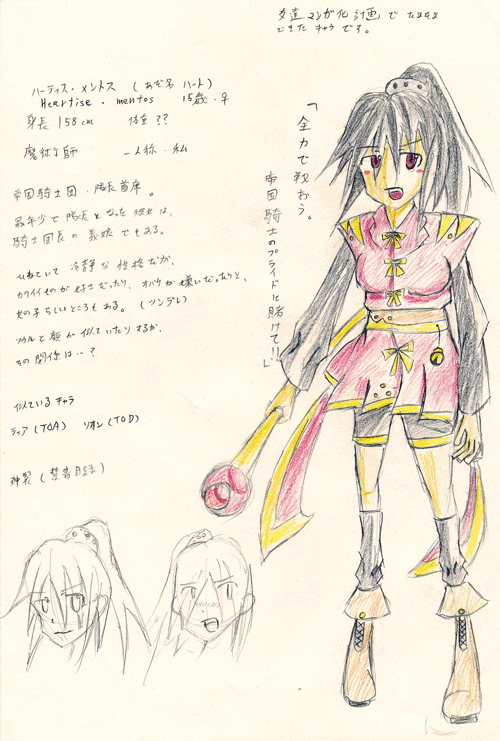 友達マンガ化計画でたまたま
できたキャラです。
ハーティス・メントス (あだ名 ハート)
Heartise・mentos 15歳・♀
身長158cm 体重??
魔術師 一人称・私
帝国騎士団・隊長首席。
最年少で隊長となった彼女は、
騎士団長の義娘でもある。
冷静な性格だが、
カワイイものが好きだったり、オバケが嫌いだったりと、
女の子らしいところもある。(ツンデレ)
ソウルと顔が似ていたりするが、
その関係は‥?
似ているキャラ
ティア(TOA) リオン(TOD)
神裂(禁書目録)
「全力で戦おう。
帝国騎士のプライドに賭けて!!」